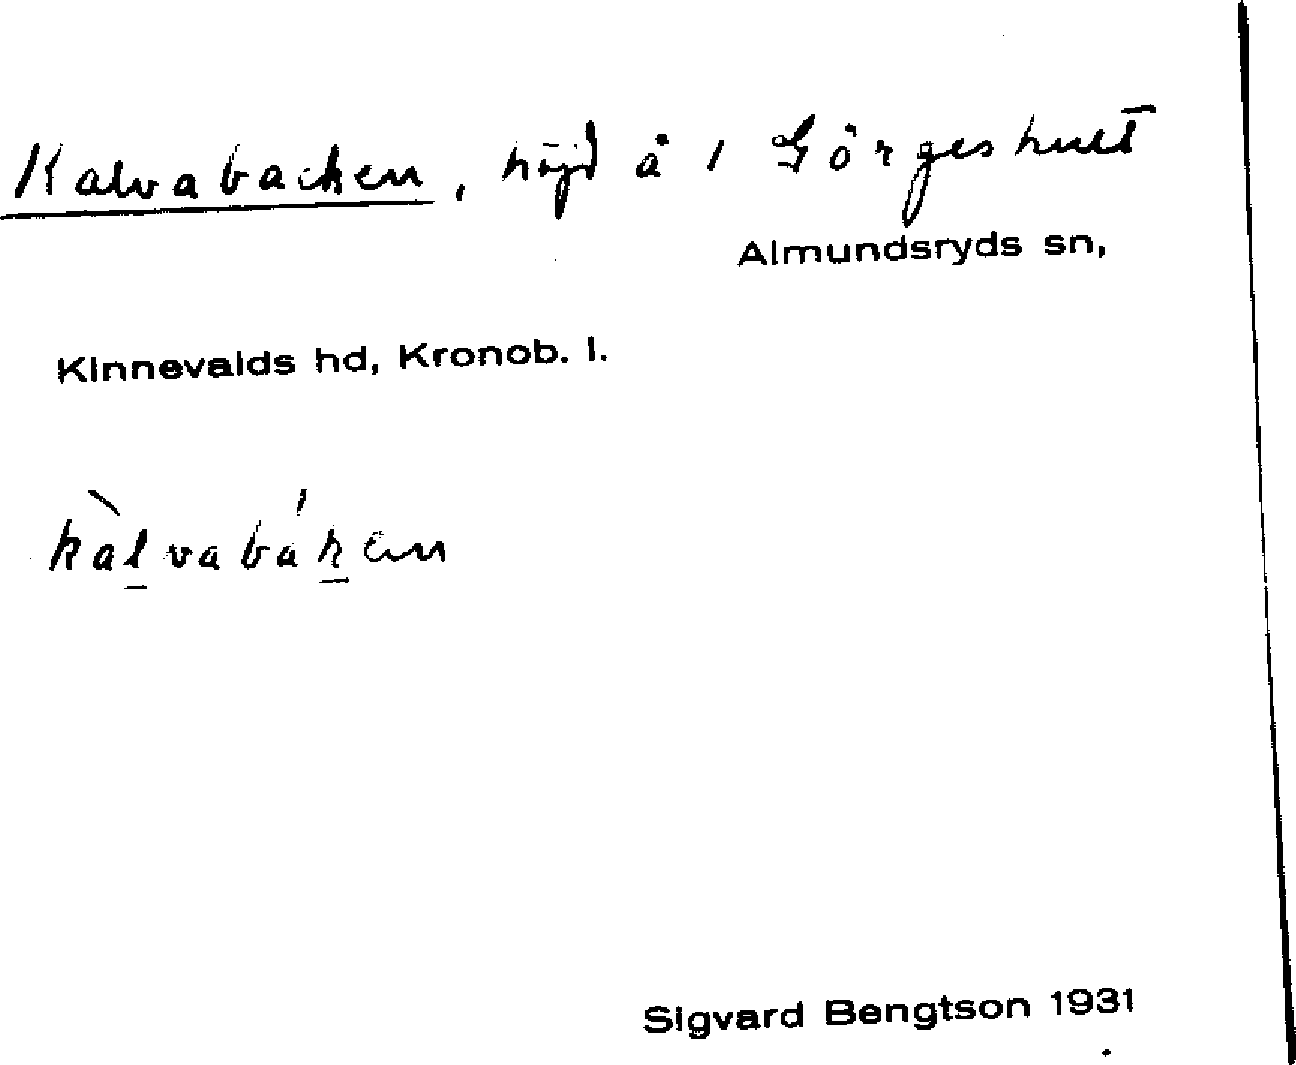 Kalvabacken, höjd å 1 Görgeshult
Almundsryds sn,
Kinnevalds hd, Kronob. l.
kàlvabáken
Sigvard Bengtson 1931